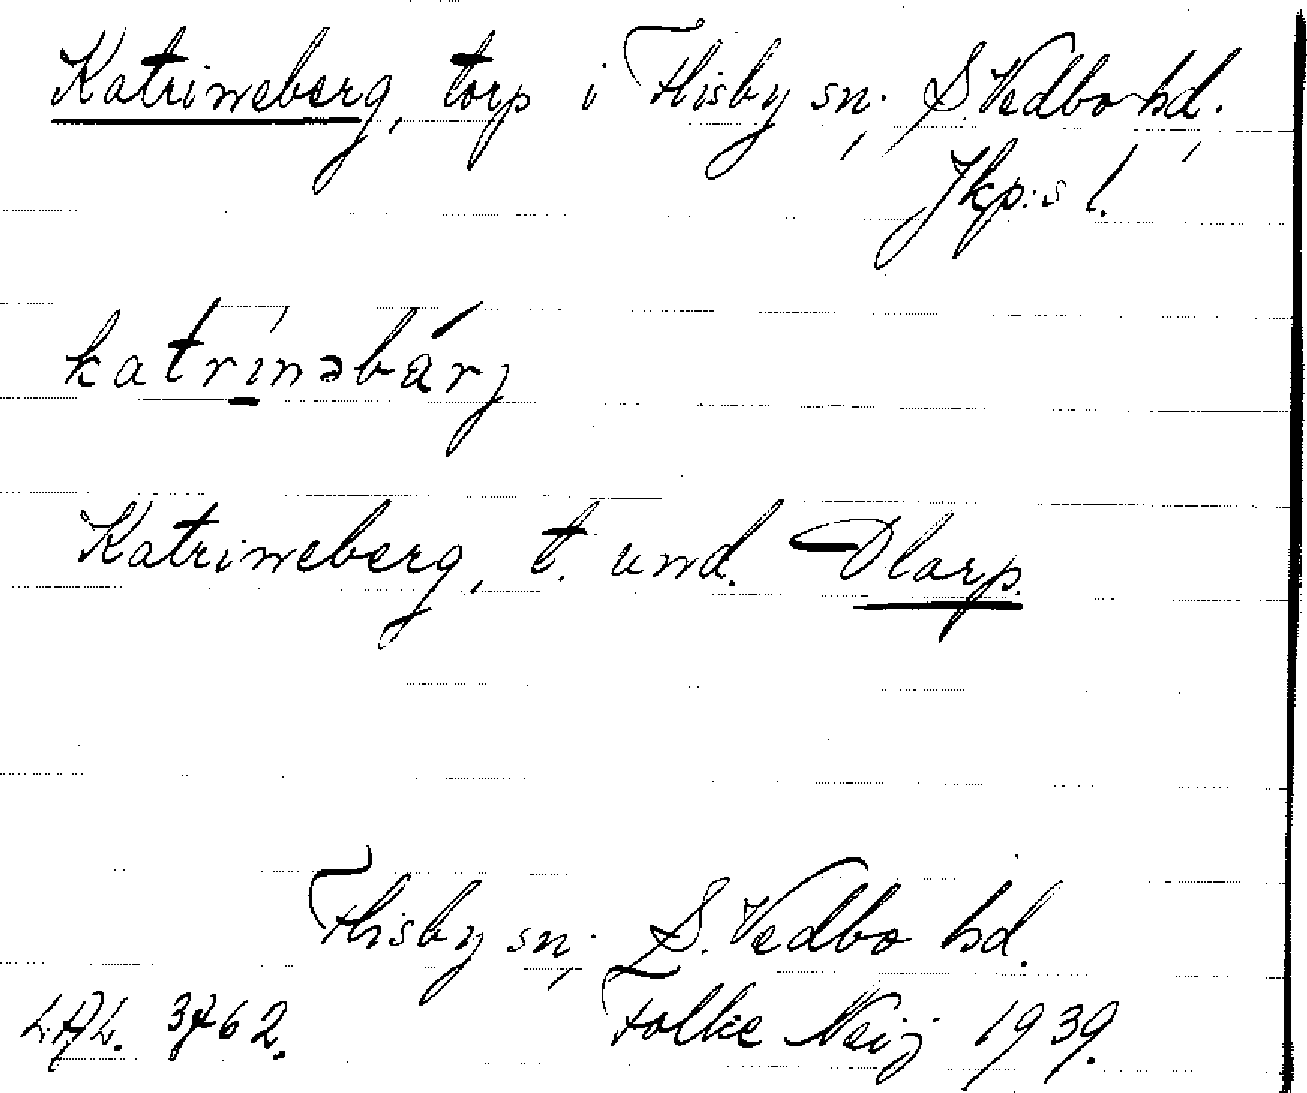 Katrineberg, torp i Flisby sn; S. Vedbo hd.,
Jkp:s l.
katrinəbárj
Katrineberg, t. und. Olarp.
Flisby sn; S. Vedbo hd.
3762. Folke Neij 1939.